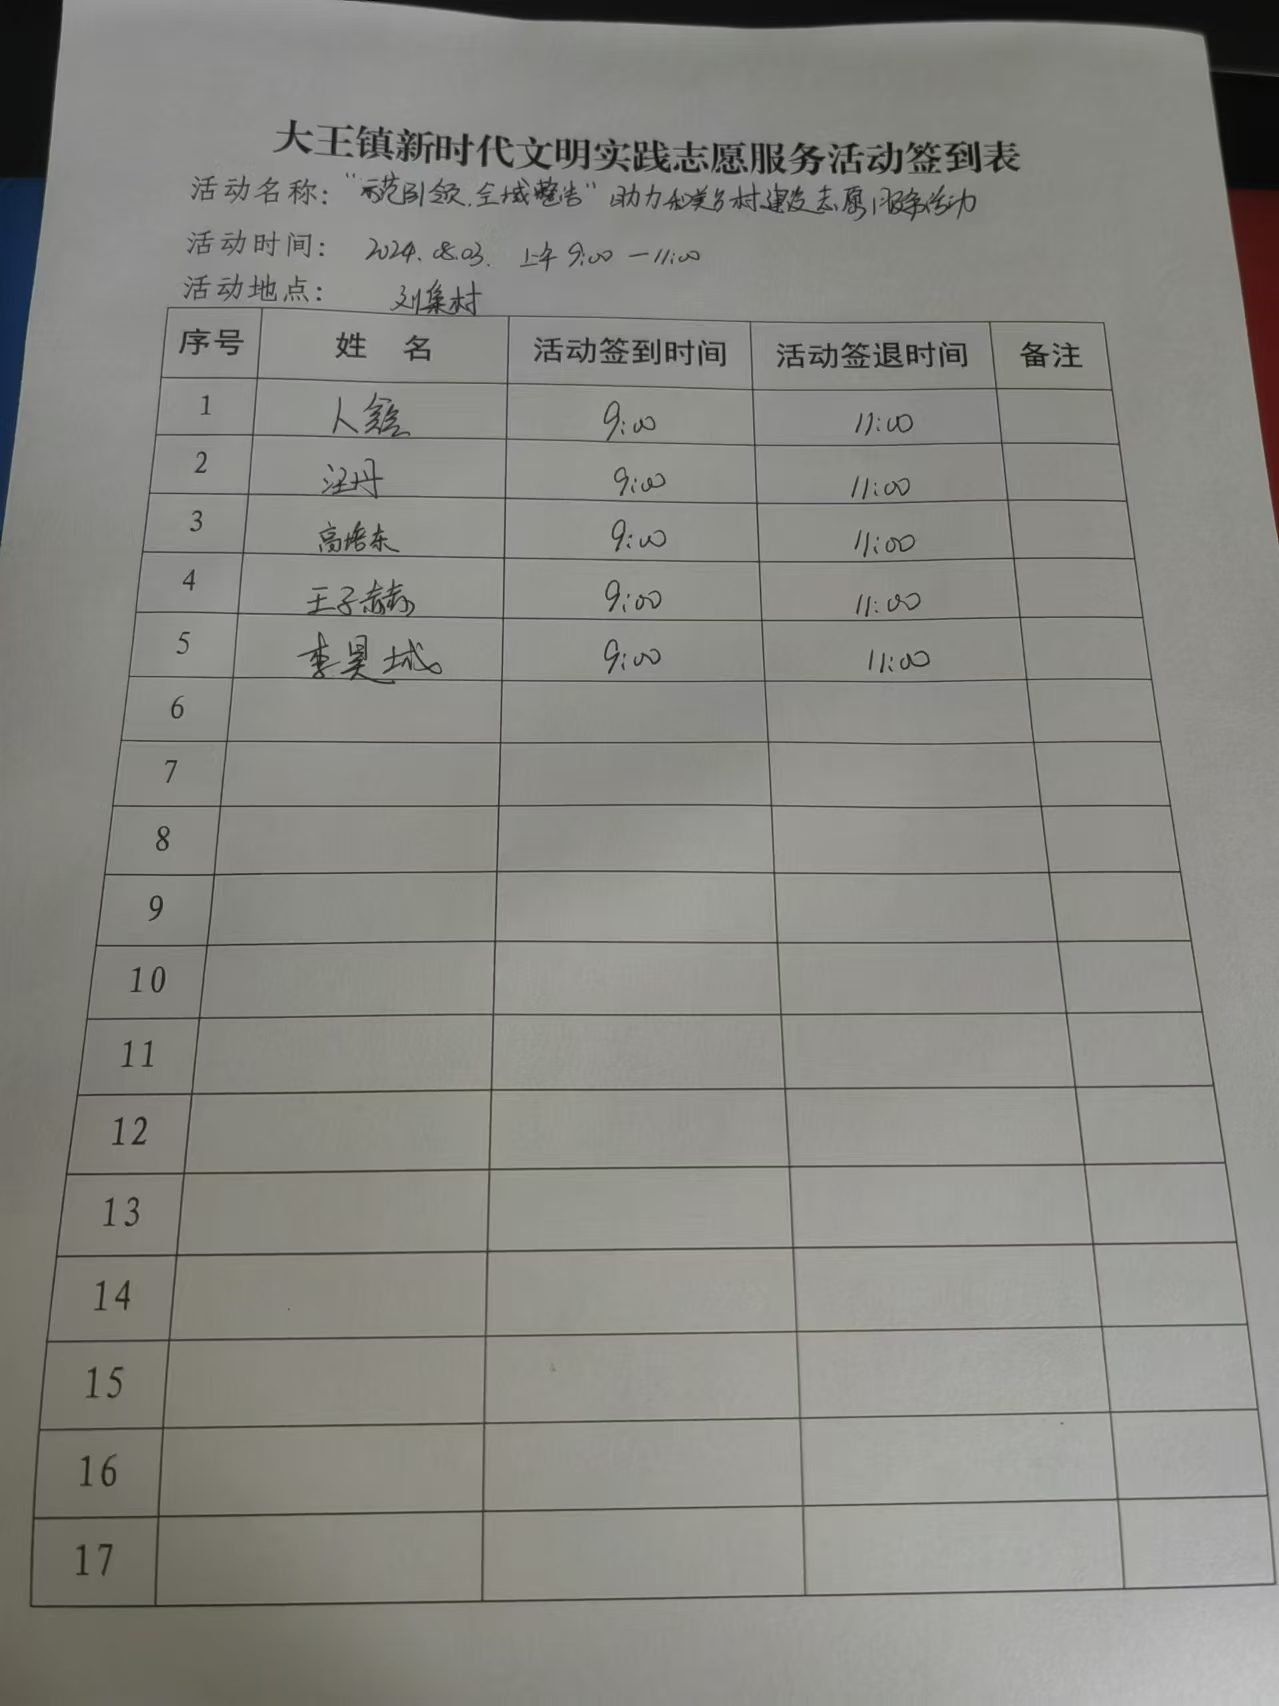 大王镇新时代文明实践志愿服务活动签到表
活动名称：“示范引领.全域整治”助力和美乡村建设志愿服务活动
活动时间： 2024.08.03. 上午 9:00 — 11:00
活动地点： 刘集村
序号 姓 名 活动签到时间 活动签退时间 备注
1 9:00 11:00
2 汪丹 9:00 11:00
3 高培东 9:00 11:00
4 王子赫 9:00 11:00
5 李昊城 9:00 11:00
6
7
8
9
10
11
12
13
14
15
16
17